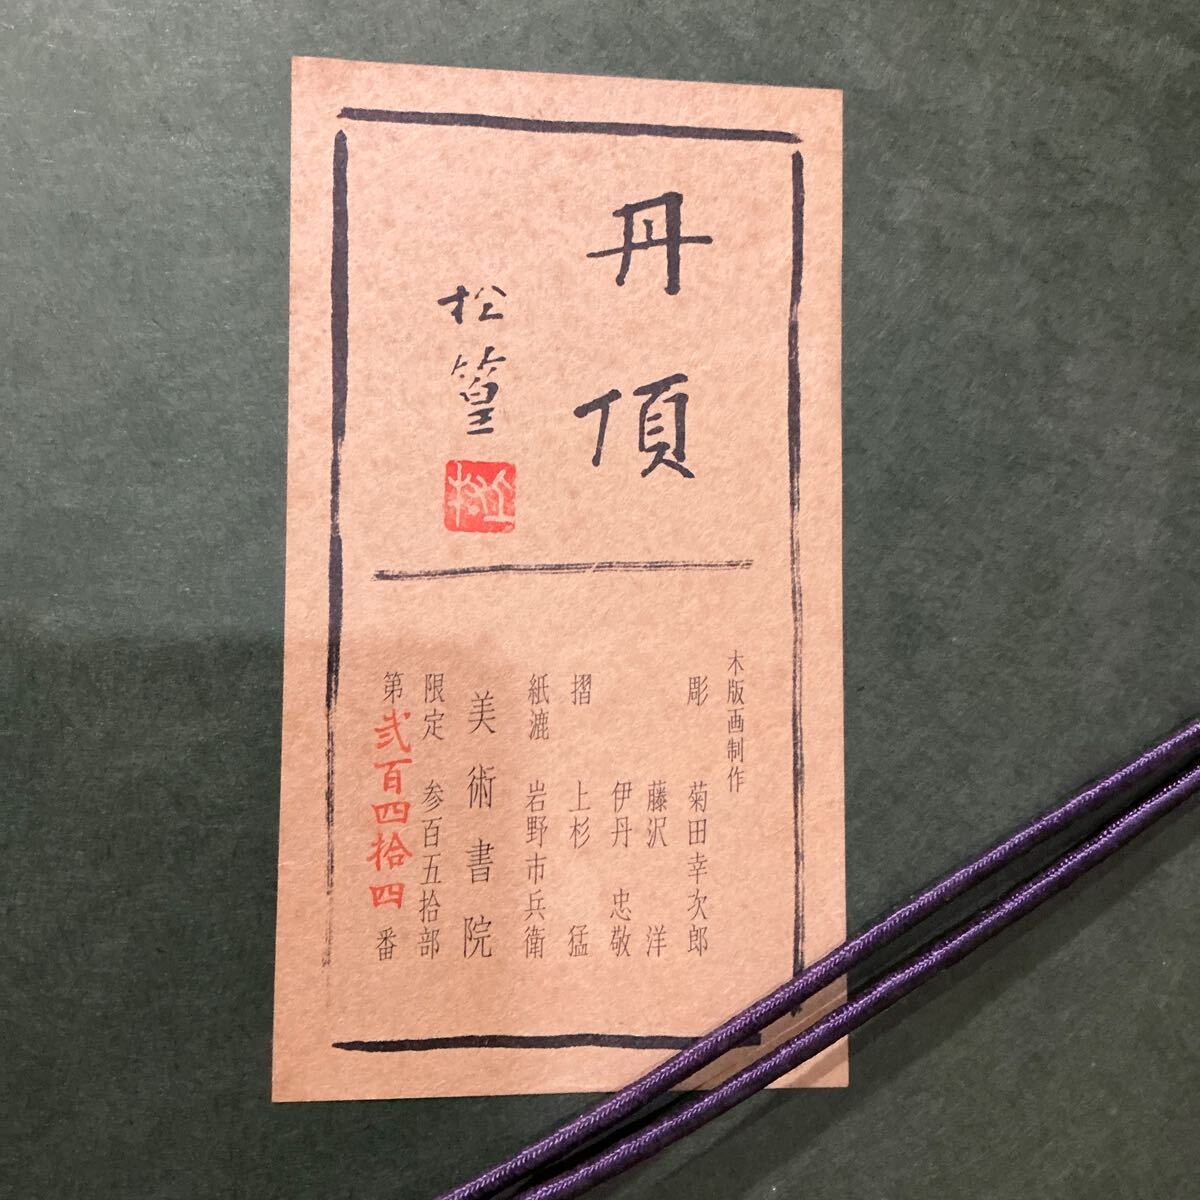 丹頂
松篁
木版画制作
彫 菊田幸次郎
藤沢 洋
伊丹 忠敬
摺 上杉 猛
紙漉 岩野市兵衛
美術書院
限定 参百五拾部
第弐百四拾四番